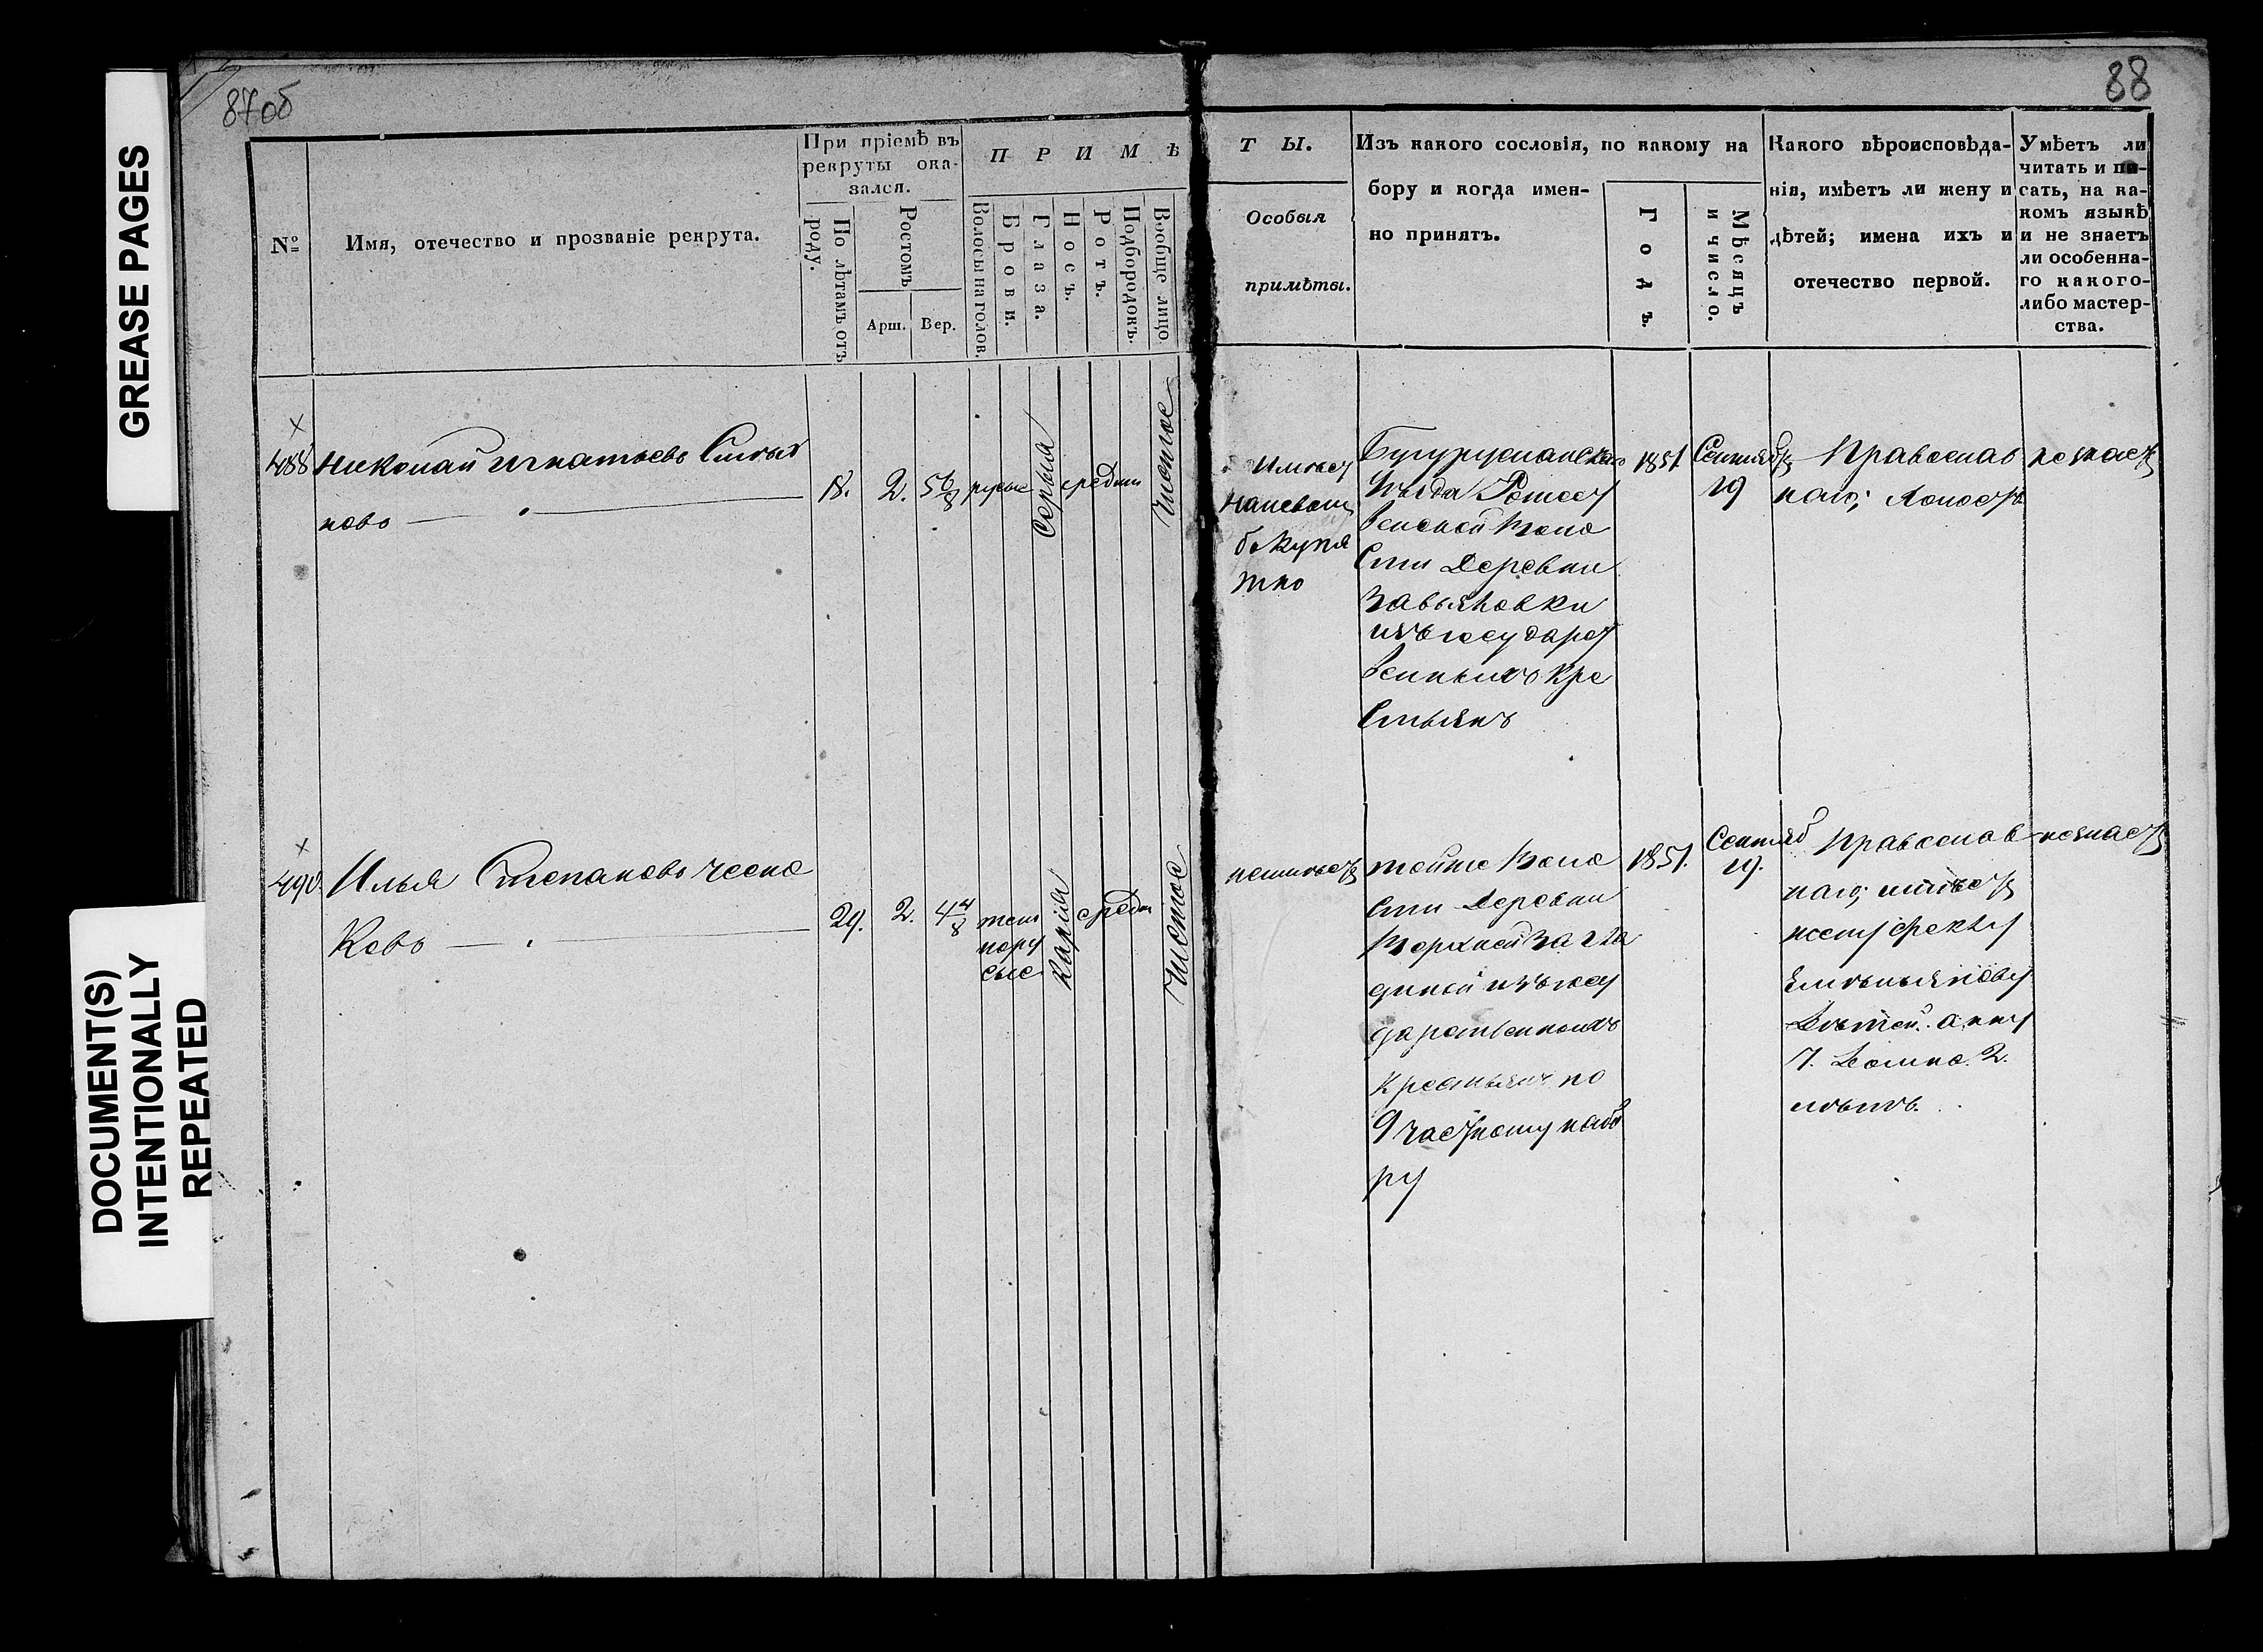 87об
88
GREASE PAGES
DOCUMENT(S)
INTENTIONALLY
REPEATED
№
Имя, отечество и прозваніе рекрута.
При пріемѣ въ
рекруты ока-
зался.
По лѣтамъ отъ
роду.
Ростомъ
Арш.
Вер.
ПРИМѢ
Волосы на голов.
Брови.
Глаза.
Носъ.
Ротъ.
Подбородокъ.
Вообще лицо
ТЫ.
Особыя
примѣты.
Изъ какого сословія, по какому на
бору и когда имен-
но принятъ.
Годъ.
Мѣсяцъ
и число.
Какого вѣроисповѣда-
нія, имѣетъ ли жену и
дѣтей; имена ихъ и
отечество первой.
Умѣетъ ли
читать и пи-
сать, на ка-
комъ языкѣ
и не знаетъ
ли особенна-
го какого-
либо мастер-
ства.
488
Николай Игнатьевъ
новъ
18.
2.
5 6/8
русые
серыя
средни
чистое
Имѣет
Бугурусланскаго
Уѣзда
венской воло
сти Деревни
Завьяловки
изъ государст
венныхъ кре
стьянъ
1851.
Сентябр
19
Православ
наго; холостъ
незнаетъ
490.
Илья Степановъ чесно
ковъ
29.
2.
4 4/8
тем
нору
сые
Карія
средн
Чистое
неимѣетъ
тойже Воло
сти Деревни
изъ госу
дарственныхъ
крестьянъ по
9 частному набо
ру
1851.
Сентяб
19.
Православ
наго; имѣетъ
жену
Дѣтей. анну
7.
2.
лѣтъ.
незнаетъ